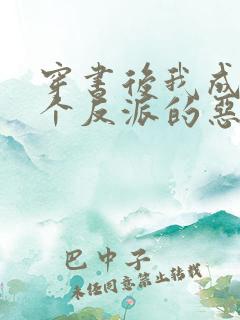 穿書後我成
个反派的惡
巴中子
未经同意禁止转载